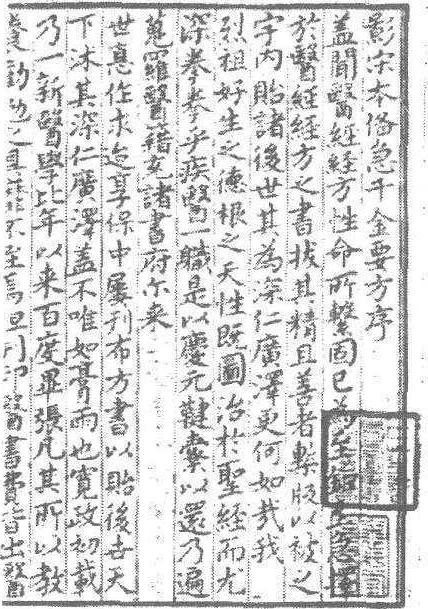 影宋本俻急千金要方序
蓋聞醫經經方性命所繫固已為至鉅至急擇
於醫經經方之書拔其精且善者鍥版以被之
宇内貽諸後世其為深仁廣澤更何如哉我
烈祖好生之德根之天性既圖治於聖經而尤
深拳拳乎疾醫一職是以慶元鞬櫜以還乃遍
蒐羅醫籍充諸書府尓来
世悳作求迨享保中屢刊布方書以貽後世天
下沐其深仁廣澤盖不唯如膏雨也寛政初載
乃一新醫學比年以来百度畢張凡其所以教
養勸勉之具靡不至焉但刊印醫書費皆出醫